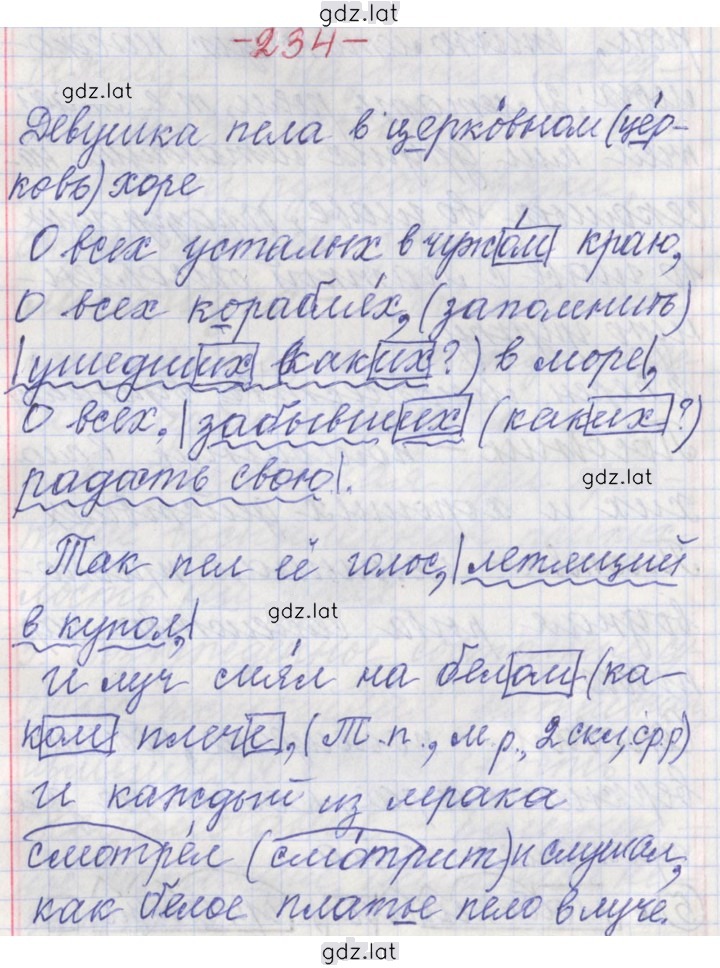 gdz.lat
-234-
gdz.lat
Девушка пела в церковном (цер-
ковь) хоре
О всех усталых в чужом краю,
О всех кораблях, (запомнить)
|ушедших (каких?) в море|,
О всех, |забывших (каких?)
gdz.lat
радость свою|.
Так пел её голос, |летящий
gdz.lat
в купол,|
И луч сиял на белом (ка-
ком) плече, (П.п., м.р., 2 скл, ср.р)
И каждый из мрака
смотрел (смотрит) и слушал,
как белое платье пело в луче.
gdz.lat